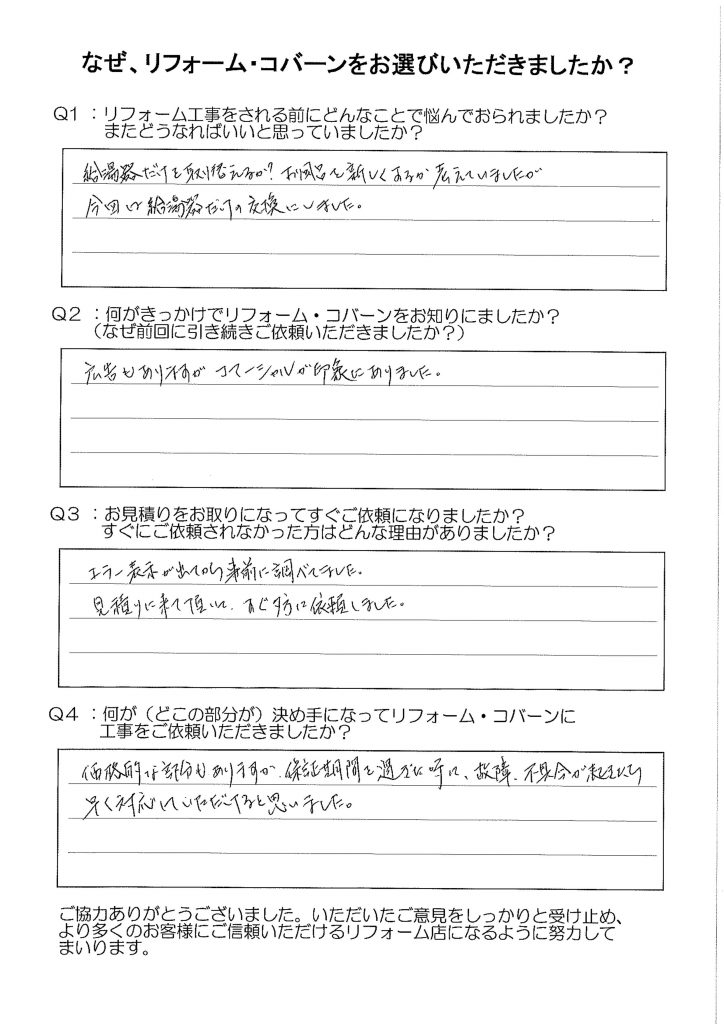 なぜ、リフォーム・コバーンをお選びいただきましたか？
Q1 ：リフォーム工事をされる前にどんなことで悩んでおられましたか？
またどうなればいいと思っていましたか？
給湯器だけを取り替えるか？お風呂も新しくするか考えていましたが
今回は給湯器だけの交換にしました。
Q2 ：何がきっかけでリフォーム・コバーンをお知りにましたか？
（なぜ前回に引き続きご依頼いただきましたか？）
広告もありますがコマーシャルが印象にありました。
Q3 ：お見積りをお取りになってすぐご依頼になりましたか？
すぐにご依頼されなかった方はどんな理由がありましたか？
エラー表示が出てから事前に調べてました。
見積りに来て頂いて、すぐ夕方に依頼しました。
Q4 ：何が（どこの部分が）決め手になってリフォーム・コバーンに
工事をご依頼いただきましたか？
価格的な部分もありますが、保証期間を過ぎた時に、故障、不具合が起きたら
早く対応していただけると思いました。
ご協力ありがとうございました。いただいたご意見をしっかりと受け止め、
より多くのお客様にご信頼いただけるリフォーム店になるように努力して
まいります。